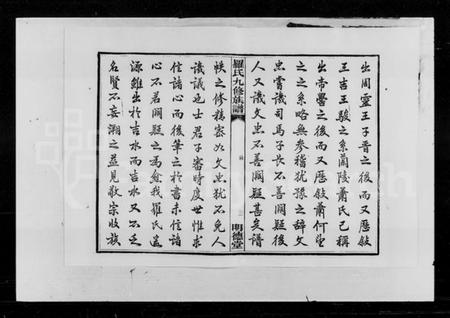 出周靈王子晉之後而又歷敘
王吉王駿之系蘭陵蕭氏已稱
出帝嚳之後而又歷敘蕭何望
之之系略無參稽猶豫之辭文
忠嘗譏司馬子長不善闕疑後
人又譏文忠不善闕疑甚矣譜
羅氏九修族譜
明德堂
牒之修精密如文忠猶不免人
譏議也士君子審時度世惟求
信諸心而後筆之於書未信諸
心不若闕疑之為愈我羅氏遠
源雖出於吉水而吉水又不乏
名賢不妄溯之益見敬宗收族